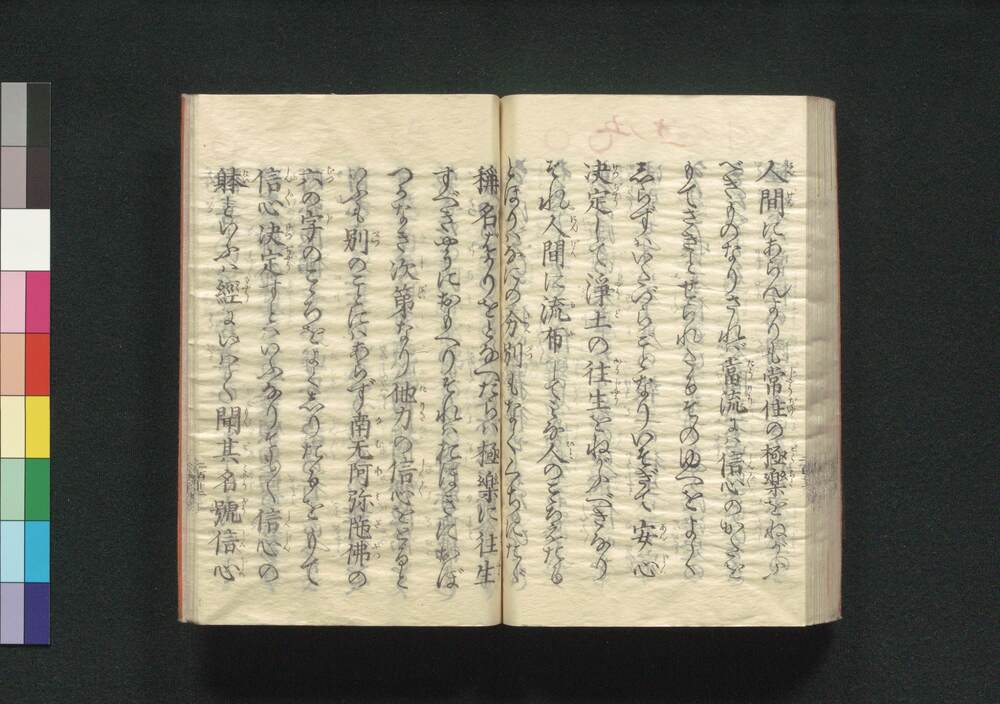 人間にあらんよりも常住の極楽をねがふ
べきものなりされば當流には信心のかたを
もてさきとせられたるそのゆへをよく
しらずはいたづらごとなりいそぎて安心
決定して浄土の往生をねがふべきなり
それ人間に流布してみな人のこゝろえたる
とほりはなにの分別もなくくちにたゞ
稱名ばかりをとなへたらば極樂に往生
すべきやうにおもへりそれはおほきにおぼ
つかなき次第なり他力の信心をとると
いふも別のことにはあらず南无阿弥陀佛の
六の字のこゝろをよくしりたるをもて
信心決定すとはいふなりそも〳〵信心の
躰といふは經にいはく聞其名號信心